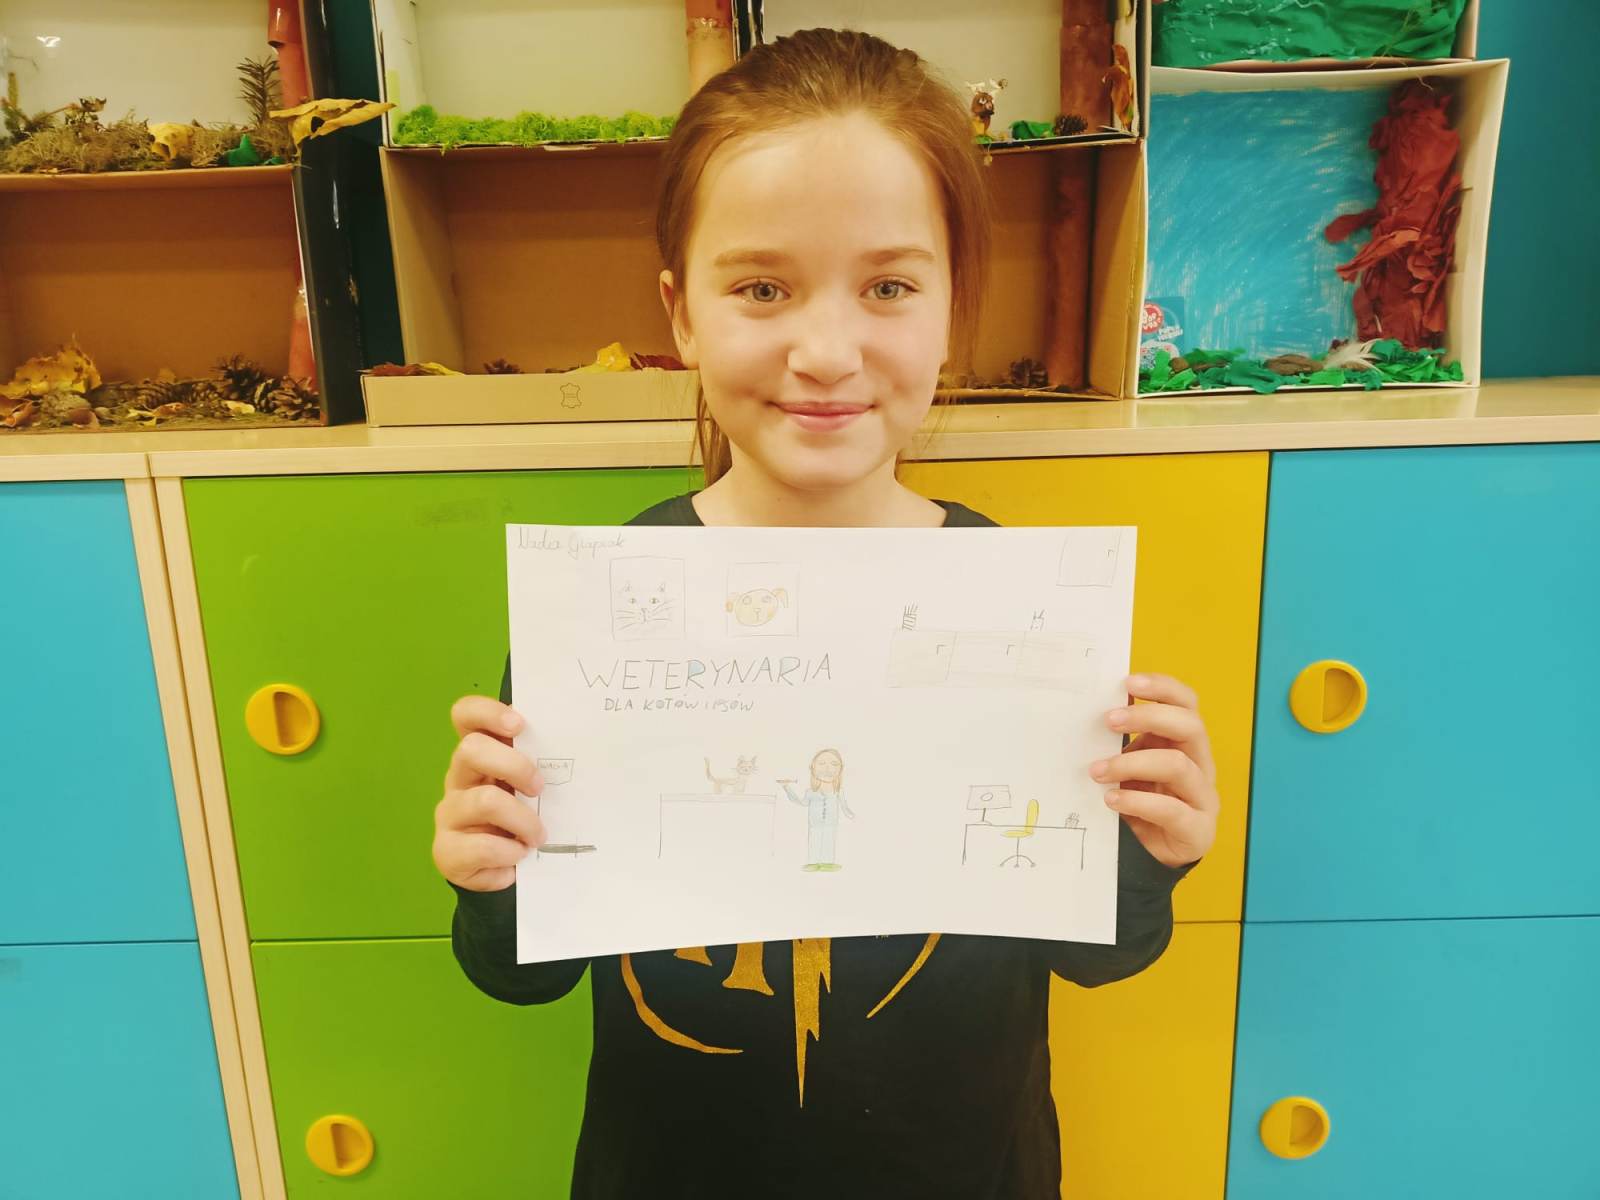 Nadia
WETERYNARIA
DLA KOTÓW I PSÓW
WAGA